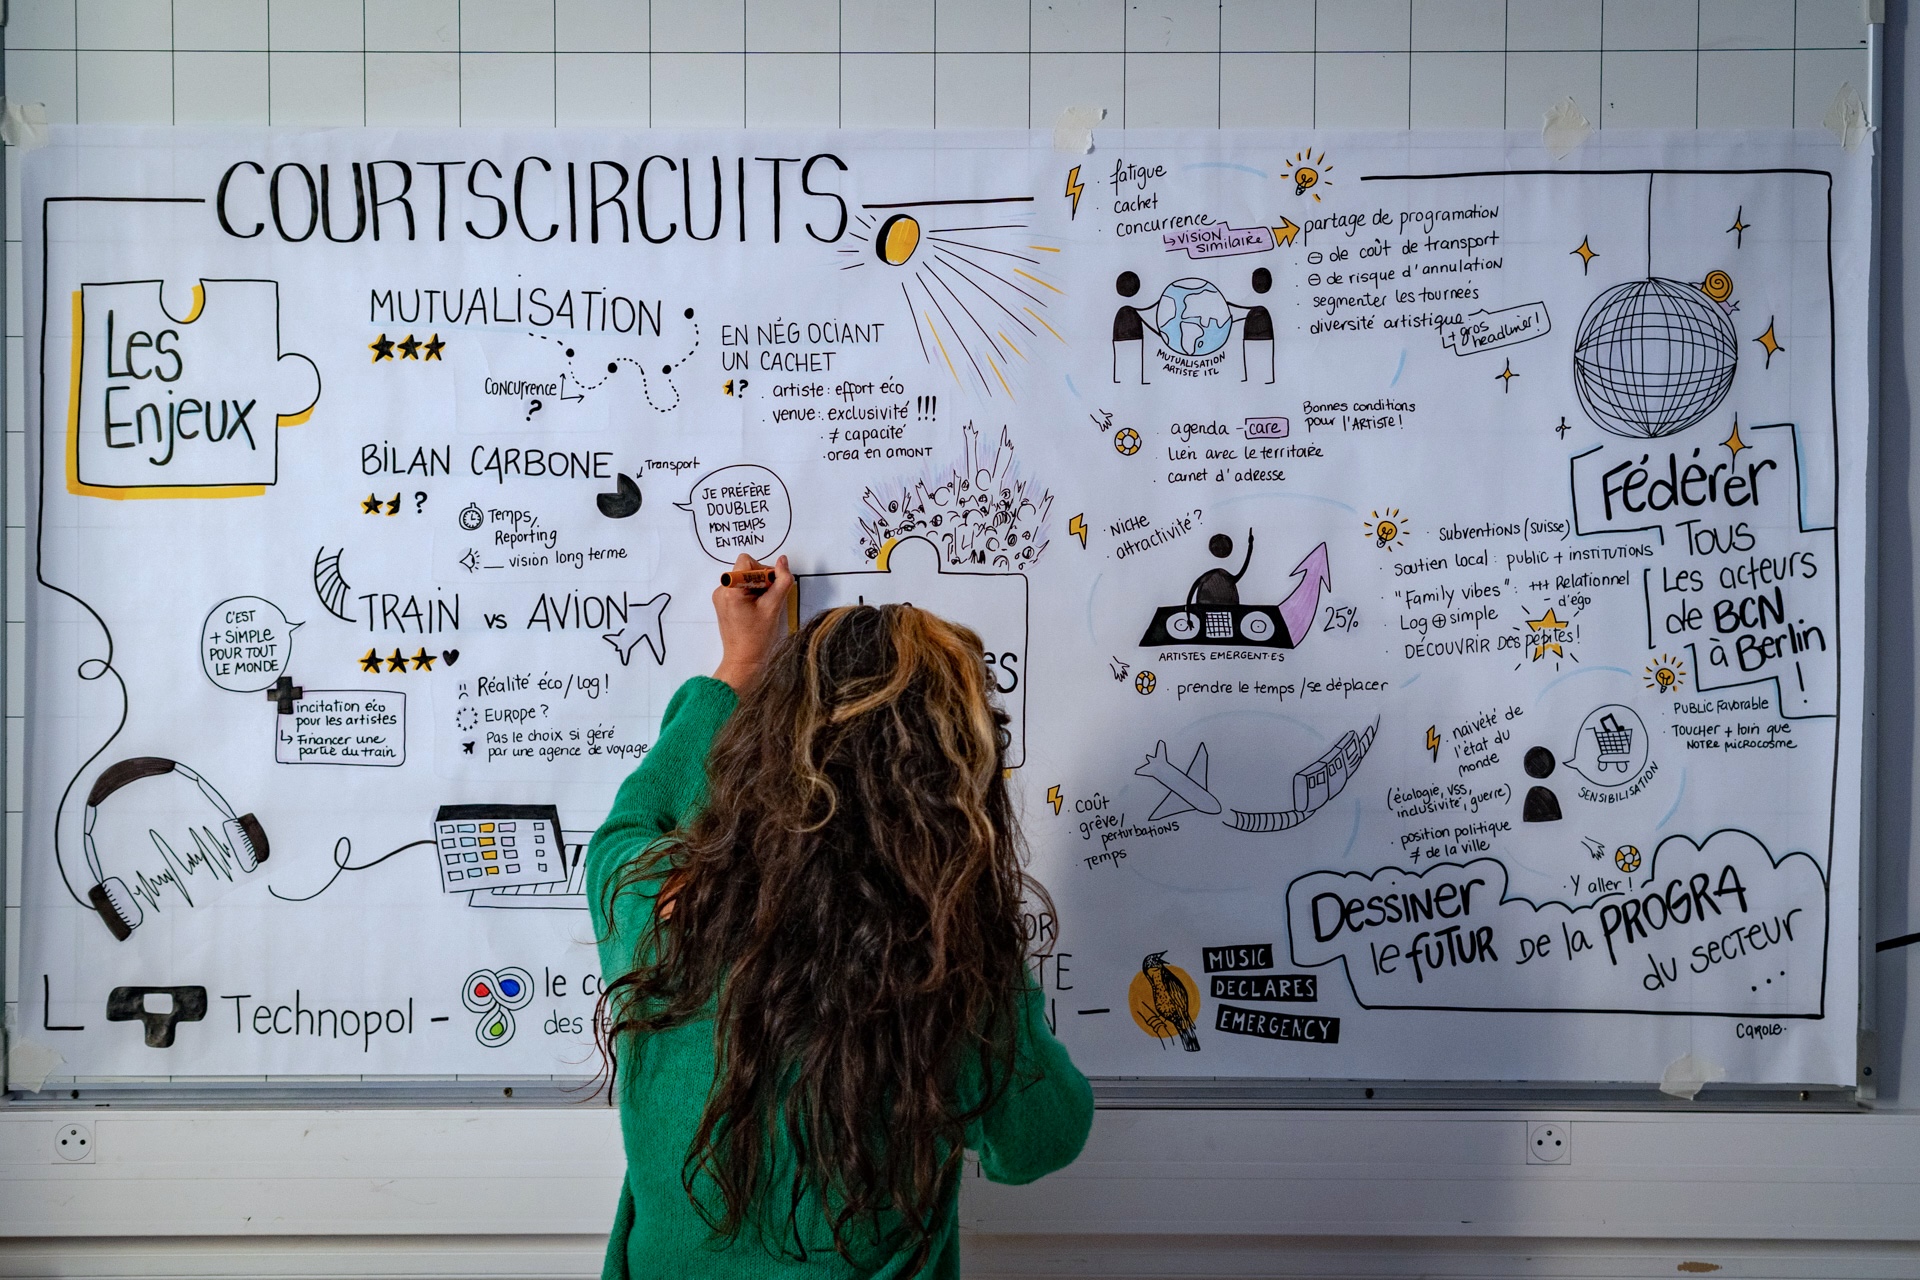 COURTSCIRCUITS
Les
Enjeux
MUTUALISATION
CONCURRENCE
?
EN NÉGOCIANT
UN CACHET
?
. artiste: effort éco
venue: exclusivité !!!
. ≠ capacité
. orga en amont
BILAN CARBONE
Transport
?
Temps/
Reporting
vision long terme
JE PRÉFÈRE
DOUBLER
MON TEMPS
EN TRAIN
TRAIN vs AVION
C'EST
+ SIMPLE
POUR TOUT
LE MONDE
incitation éco
pour les artistes
↳ Financer une
partie du train
Réalité éco/log!
EUROPE ?
Pas le choix si géré
par une agence de voyage
es
S
. fatigue
. cachet
. concurrence
↳ VISION
similaire
partage de programation
⊖ de coût de transport
⊖ de risque d'annulation
. segmenter les tournées
. diversité artistique
↳ + gros
headliner!
MUTUALISATION
ARTISTE ITL
. agenda - care
. Lien avec le territoire
. carnet d'adresse
Bonnes conditions
pour l'ARTiste!
. NICHE
. attractivité?
25%
ARTISTES EMERGENT·ES
. prendre le temps /se déplacer
. Subventions (suisse)
. Soutien local : public + institutions
. "Family vibes" : +++ Relationnel
- d'égo
. Log ⊕ simple
. DÉCOUVRIR DES pépites!
Fédérer
Tous
Les acteurs
de BCN
à Berlin
!
. PUBLIC Favorable
. TOUCHER + loin que
NOTRE microcosme
. coût
. grève/
perturbations
. Temps
. naïveté de
l'état du
monde
(écologie, VSS,
inclusivité, guerre)
. position politique
≠ de la ville
SENSIBILISATION
. Y aller !
Dessiner
le FUTUR de la PROGRA
du secteur
...
Technopol -
le co
des fe
OR
TE
N -
MUSIC
DECLARES
EMERGENCY
Carole.